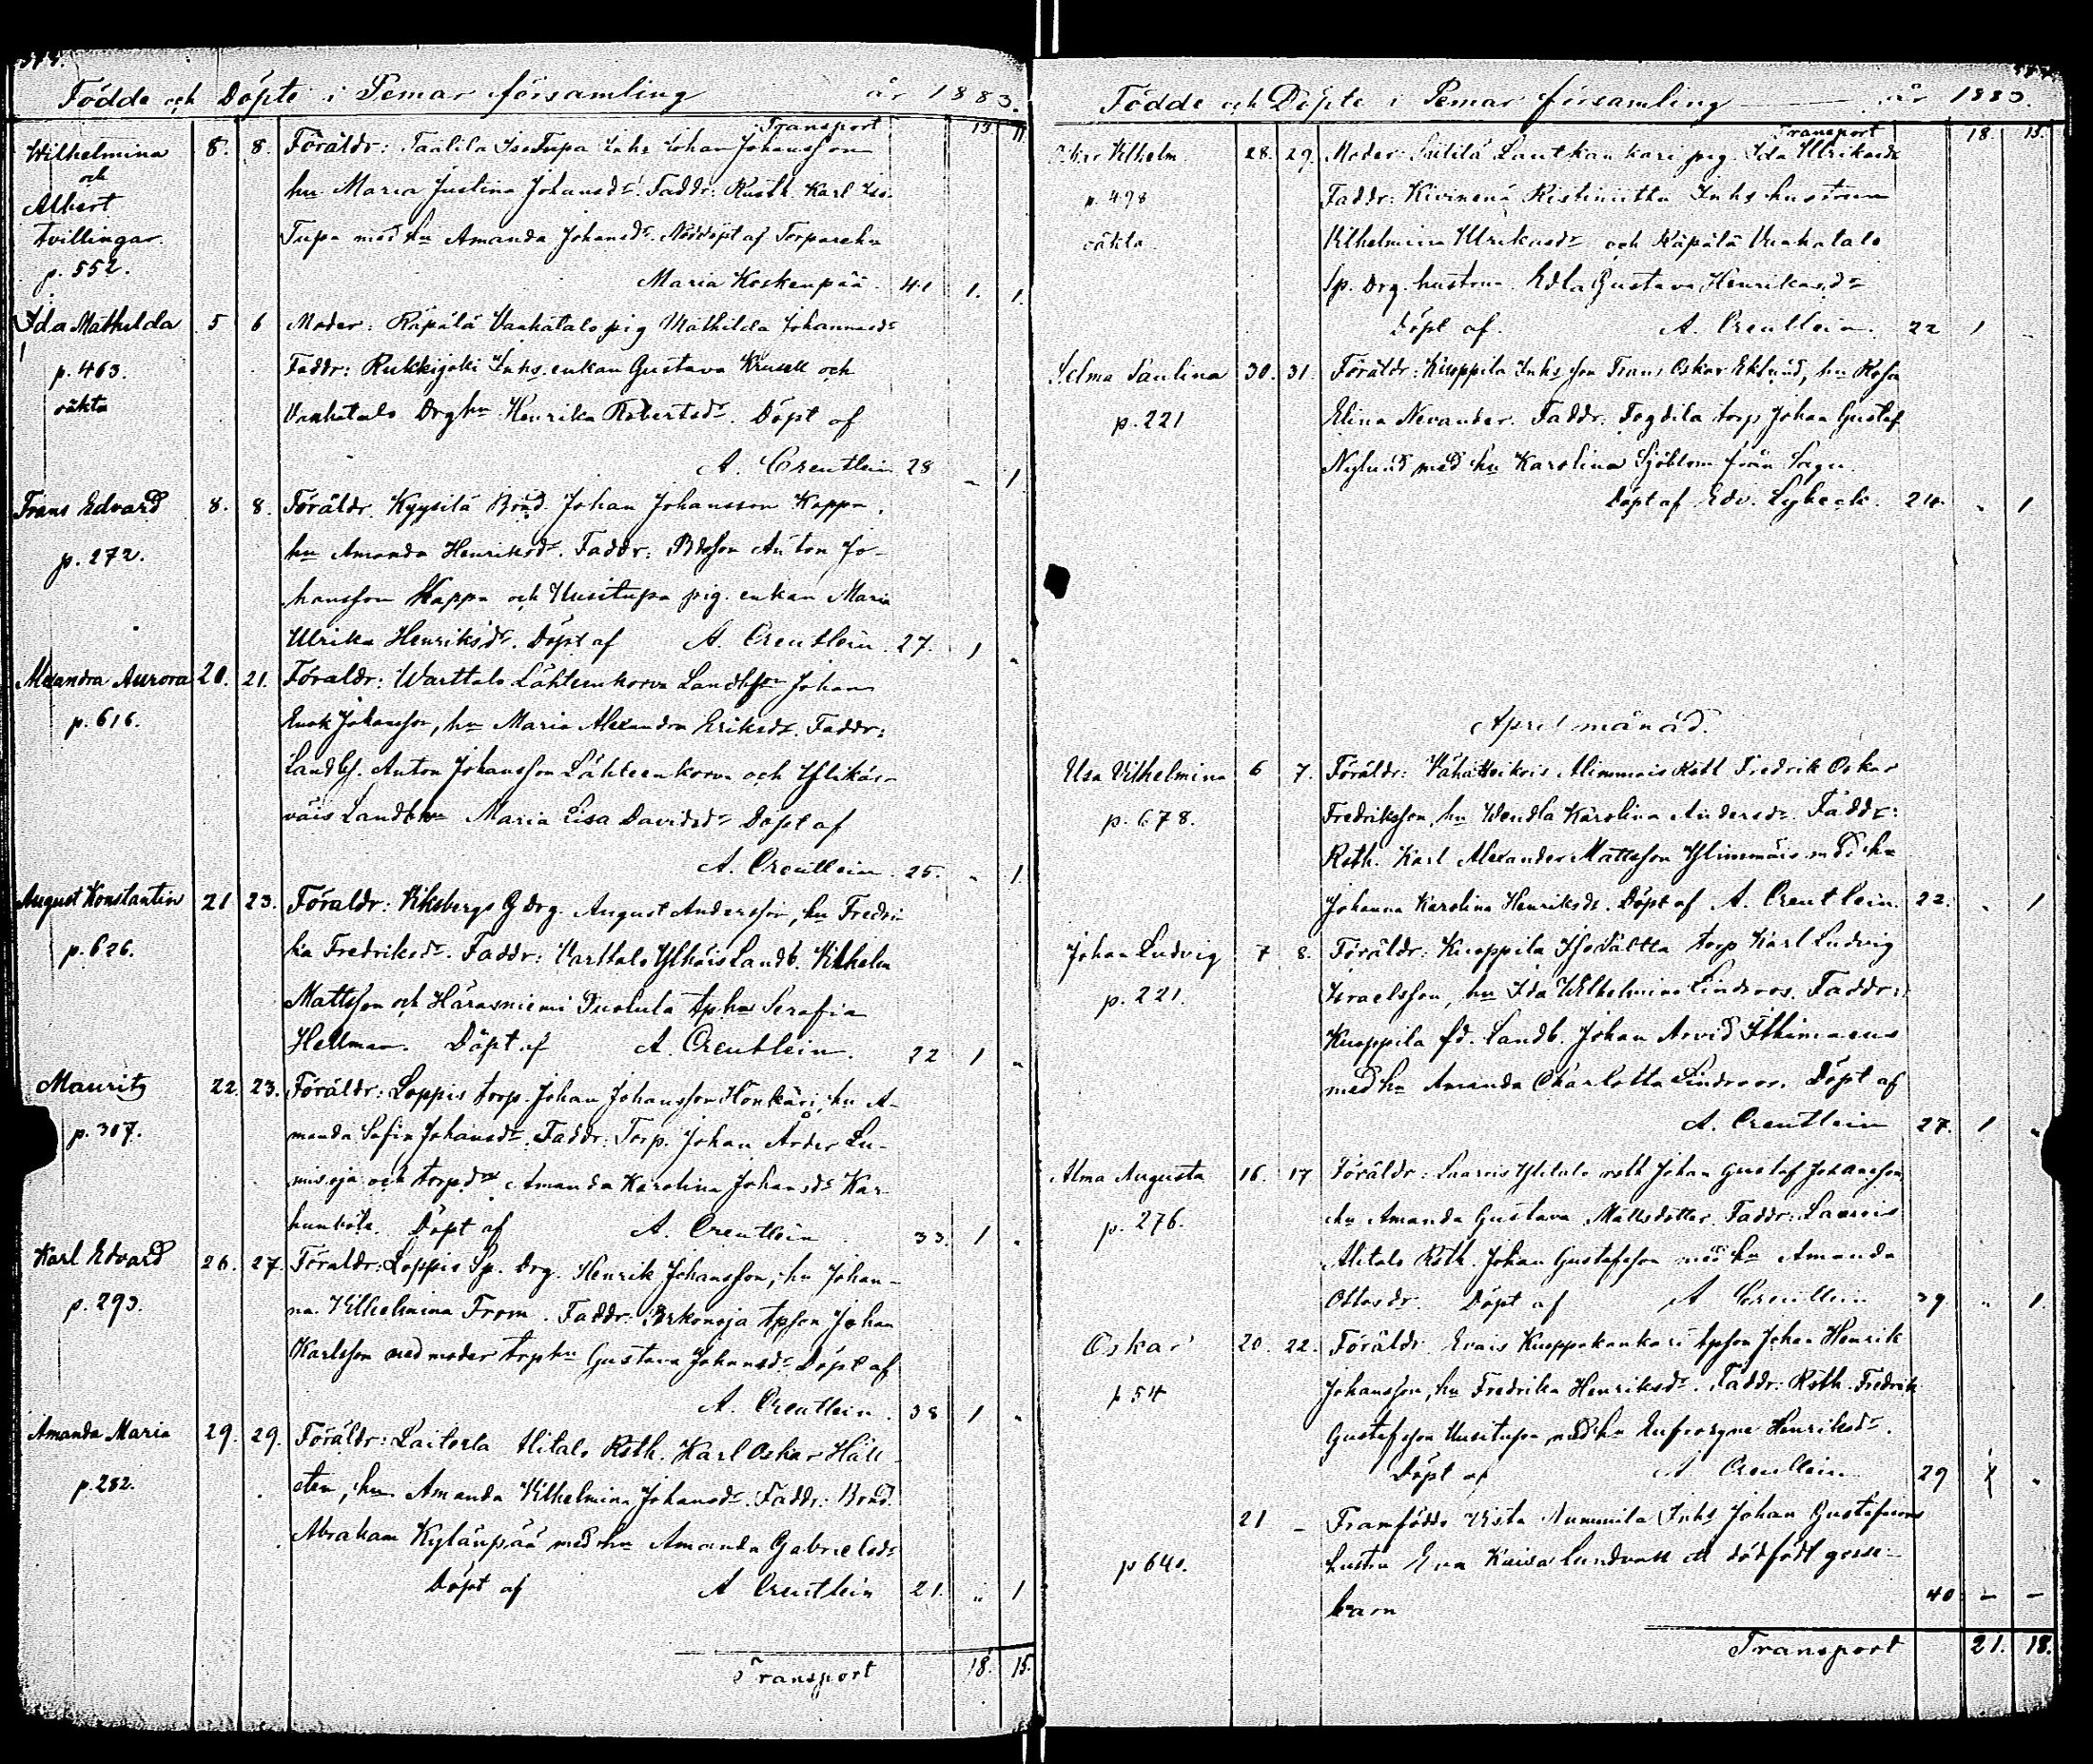 Födde och Döpte i Pemar församling år 1883.
Transport 13 11
Wilhelmina 8. 8. Föräldr: Taatila IsoTupa Inhs Johan Johansson
och
Albert hu Maria Justina Johansdr. Faddr: Rusth. Karl Iso-
tvillingar. Tupa med hu Amanda Johansdr. Nöddöpt af Torparehu
p. 552. Maria Koskenpää 41 1. 1.
Ida Mathilda 5 6 Moder: Räpälä Vanhatalo pig Mathilda Johannesdr
p. 463. Faddr: Rukkijoki Inhs. enkan Gustava Krusell och
oäkta Vanhatalo Drghu Henrika Robertsdr. Döpt af
A. Creutlein 28 - 1
Frans Edvard 8. 8. Föräldr. Kyysilä Bond. Johan Johansson Kappa,
p. 272. hu Amanda Henriksdr. Faddr: Bdeson Anton Jo-
hansson Kappa och Uusitupa pig. enkan Maria
Ulrika Henriksdr. Döpt af A. Creutlein 27. 1 "
Alexandra Aurora 20. 21. Föräldr: Warttalo Lähteenkorva Landbson Johan
p. 616. Enok Johansson, hu Maria Alexandra Eriksdr. Faddr:
Landbs. Anton Johansson Lähteenkorva och
Landbhu Maria Lisa Davidsdr Döpt af
A. Creutlein 25. " 1
August Konstantin 21 23. Föräldr: Viksbergs G Drg. August Andersson, hu Fredri-
p. 626. ka Fredriksdr. Faddr: Varttalo Ylhäis Landb. Vilhelm
Mattsson och Härasniemi Tuolula tphu Serafia
Hellman. Döpt af A. Creutlein. 22 1 "
Mauritz 22. 23. Föräldr: Loppis torp. Johan Johansson Honkäri, hu A-
p. 307. manda Sofia Johansdr. Faddr: Torp. Johan Ärder Lu-
misoja och torpdr Amanda Karolina Johansdr Kar-
hunböle. Döpt af A. Creutlein 33. 1 "
Karl Edvard 26. 27. Föräldr: Loppis Sp. Drg. Henrik Johansson, hu Johan-
p. 293. na Vilhelmina From. Faddr: Erkonoja tpson Johan
Karlsson med moder torphu Gustava Johansdr Döpt af
A. Creutlein. 38 1 "
Amanda Maria 29. 29. Föräldr: Laiterla Alitalo Rsth. Karl Oskar Häll-
p. 282. sten, hu Amanda Vilhelmina Johansdr. Faddr: Bond.
Abraham Kylänpää med hu Amanda Gabrielsdr
Döpt af A Creutlein 21. " 1
Transport 18. 15.
Födde och Döpte i Pemar församling år 1883.
Transport 18. 15.
Oskar Vilhelm 28. 29. Moder: Lautkankari pig. Ida Ulriksdr
p. 498 Faddr: Kivinenä Ristimitta Inhs hustrun
oäkta Vilhelmina Ulriksdr och Räpälä Vanhatalo
Sp. Drg. hustrun Edla Gustava Henriksdr
Döpt af A. Creutlein. 22 1 -
Selma Paulina 30. 31. Föräldr: Kuoppila Inhs son Frans Oskar Eklund, hu Rosa
p. 221 Elina Nevander. Faddr: Fogdila torp Johan Gustaf
Nylund med hu Karolina Sjöblom från Sagu.
Döpt af Edv. Lybeck. 24. " 1
April månad.
Elsa Vilhelmina 6 7. Föräldr: Vähäveikois Alimmais Rstl Fredrik Oskar
p. 678. Fredriksson, hu Wendla Karolina Andersdr. Faddr:
Rsth. Karl Alexander Mattsson Ylimmäis med hu
Johanna Karolina Henriksdr. Döpt af A. Creutlein. 22. " 1
Johan Ludvig 7 8. Föräldr: Kuoppila torp Karl Ludvig
p. 221. Israelsson, hu Ida Wilhelmina Lindroos. Faddr:
Kuoppila fd. Landb. Johan Arvid
med hu Amanda Charlotta Lindroos. Döpt af
A. Creutlein 27. 1 "
Alma Augusta 16. 17 Föräldr: Laurois Ylitalo rsth Johan Gustaf Johansson,
p. 276. hu Amanda Gustava Mattsdotter. Faddr: Laurois
Alitalo Rsth. Johan Gustafsson med hu Amanda
Ottosdr. Döpt af A Creutlein 39 " 1.
Oskar 20. 22. Föräldr. Evais Kuoppakankari tpson Johan Henrik
p 54 Johansson, hu Fredrika Henriksdr. Faddr: Rsth. Fredrik
Gustafsson Uusitupa med hu Eufrosyne Henriksdr.
Döpt af A Creutlein 29 1 "
21 - Framfödde Vista Nummila Inhs Johan Gustafssons
p 640. hustru Eva Kaisa Lundvall ett dödfödt gosse-
barn 40 - -
Transport 21. 18.